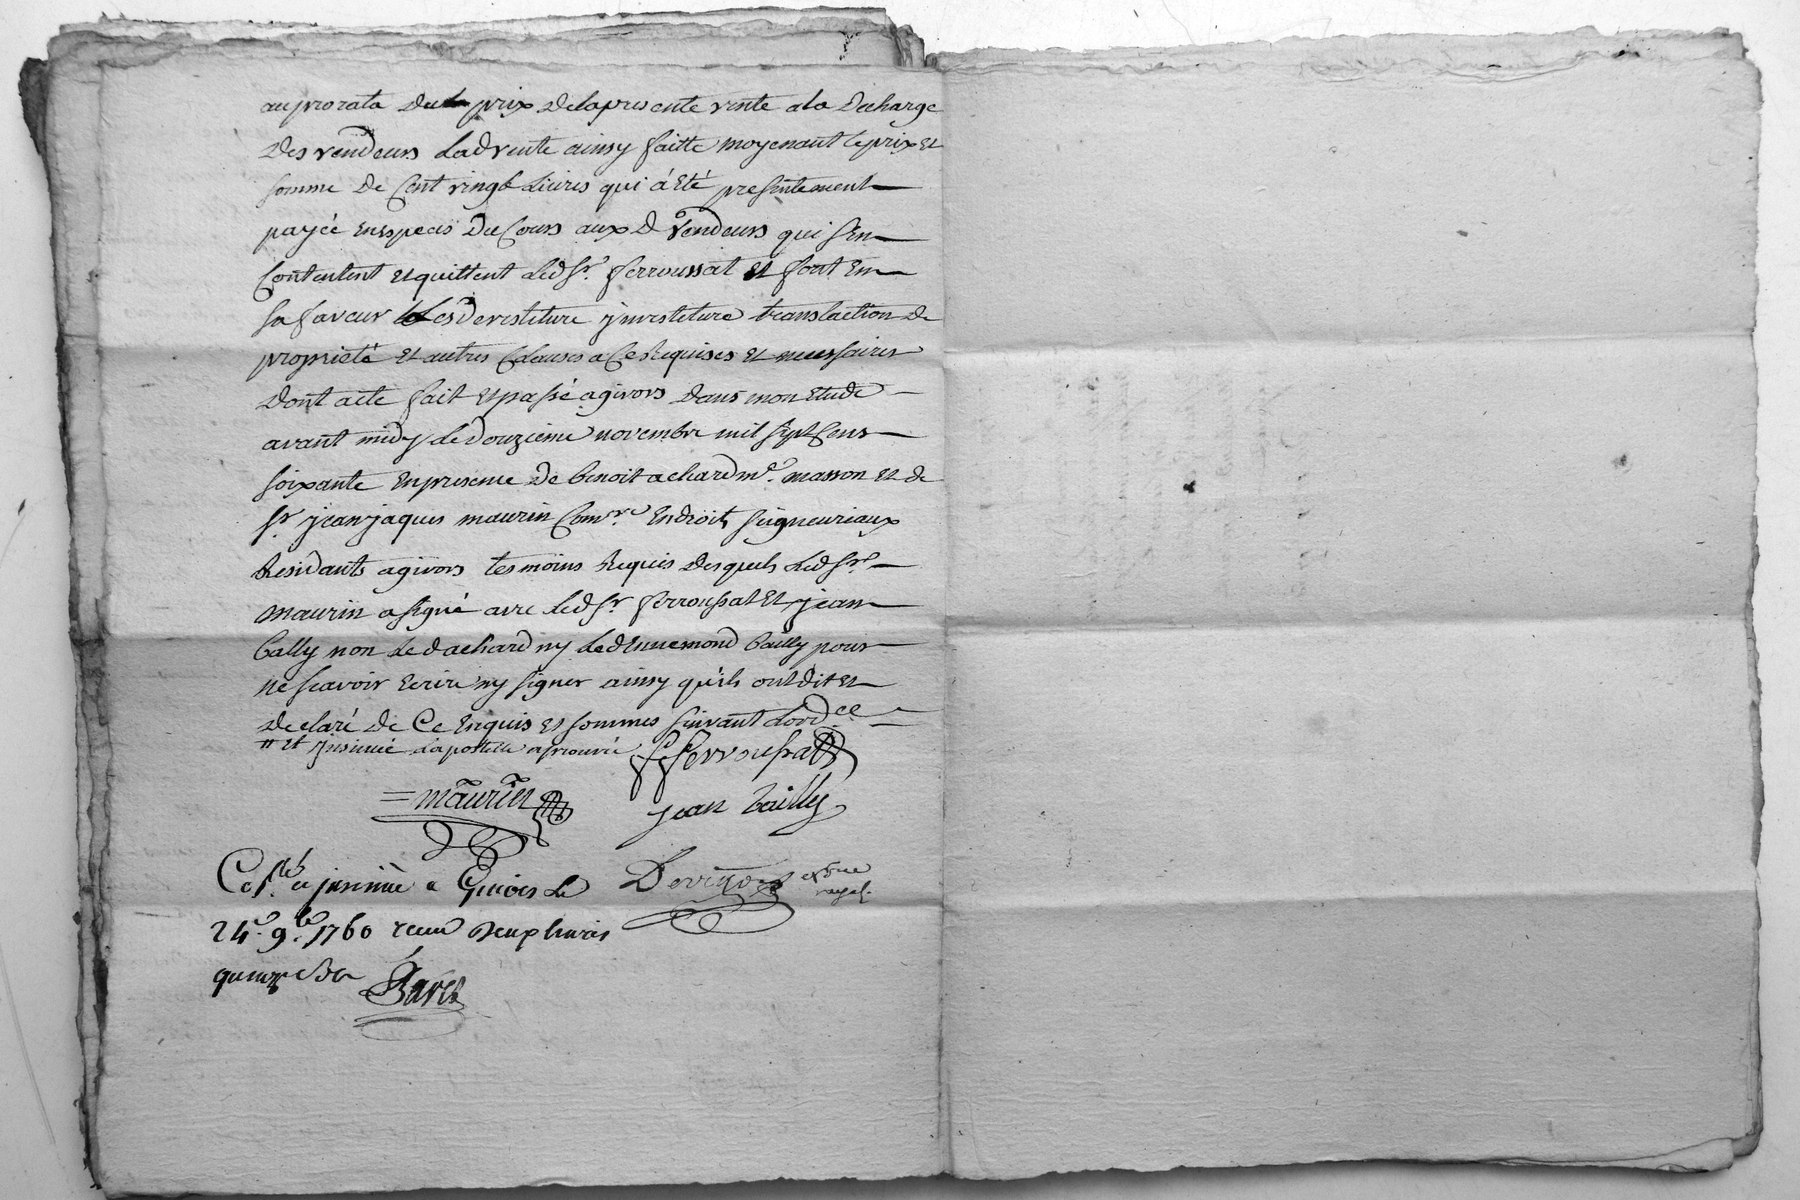 au prorata du prix de la presente vente a la decharge
des vendeurs Ladvente ainsy faitte moyenant le prix et
somme de Cent vingt Livres qui á eté presentement
payée en especes Du Cours aux d vendeurs qui s'en
Contentent et quittent Led Sr. ferroussat et font en
sa faveur les devestiture ynvestiture translaction de
proprieté et autres Clauses a Ce Requises et necessaires
Dont acte fait et passé a givors dans mon Etude
avant midy Le Douzieme novembre mil sept Cens
soixante en presence de benoit achard me. masson et de
sr. jean jaques maurin Comre. En droits seigneuriaux
Residants a givors tesmoins Requis desquels Led Sr.
maurin a signé avec led sr ferroussat et jean
bally non Le d achard ny Led Ennemond bailly pour
ne scavoir Ecrire ny signer ainsy qu'ils ont dit et
declaré de Ce Enquis et sommes suivant Lordce.
# et Insinué Lapostille aprouvé fferroussat
= maurin
jean bailly
Collé. et insinué a Givors Le
24e. 9bre. 1760 recu deux livres
royal